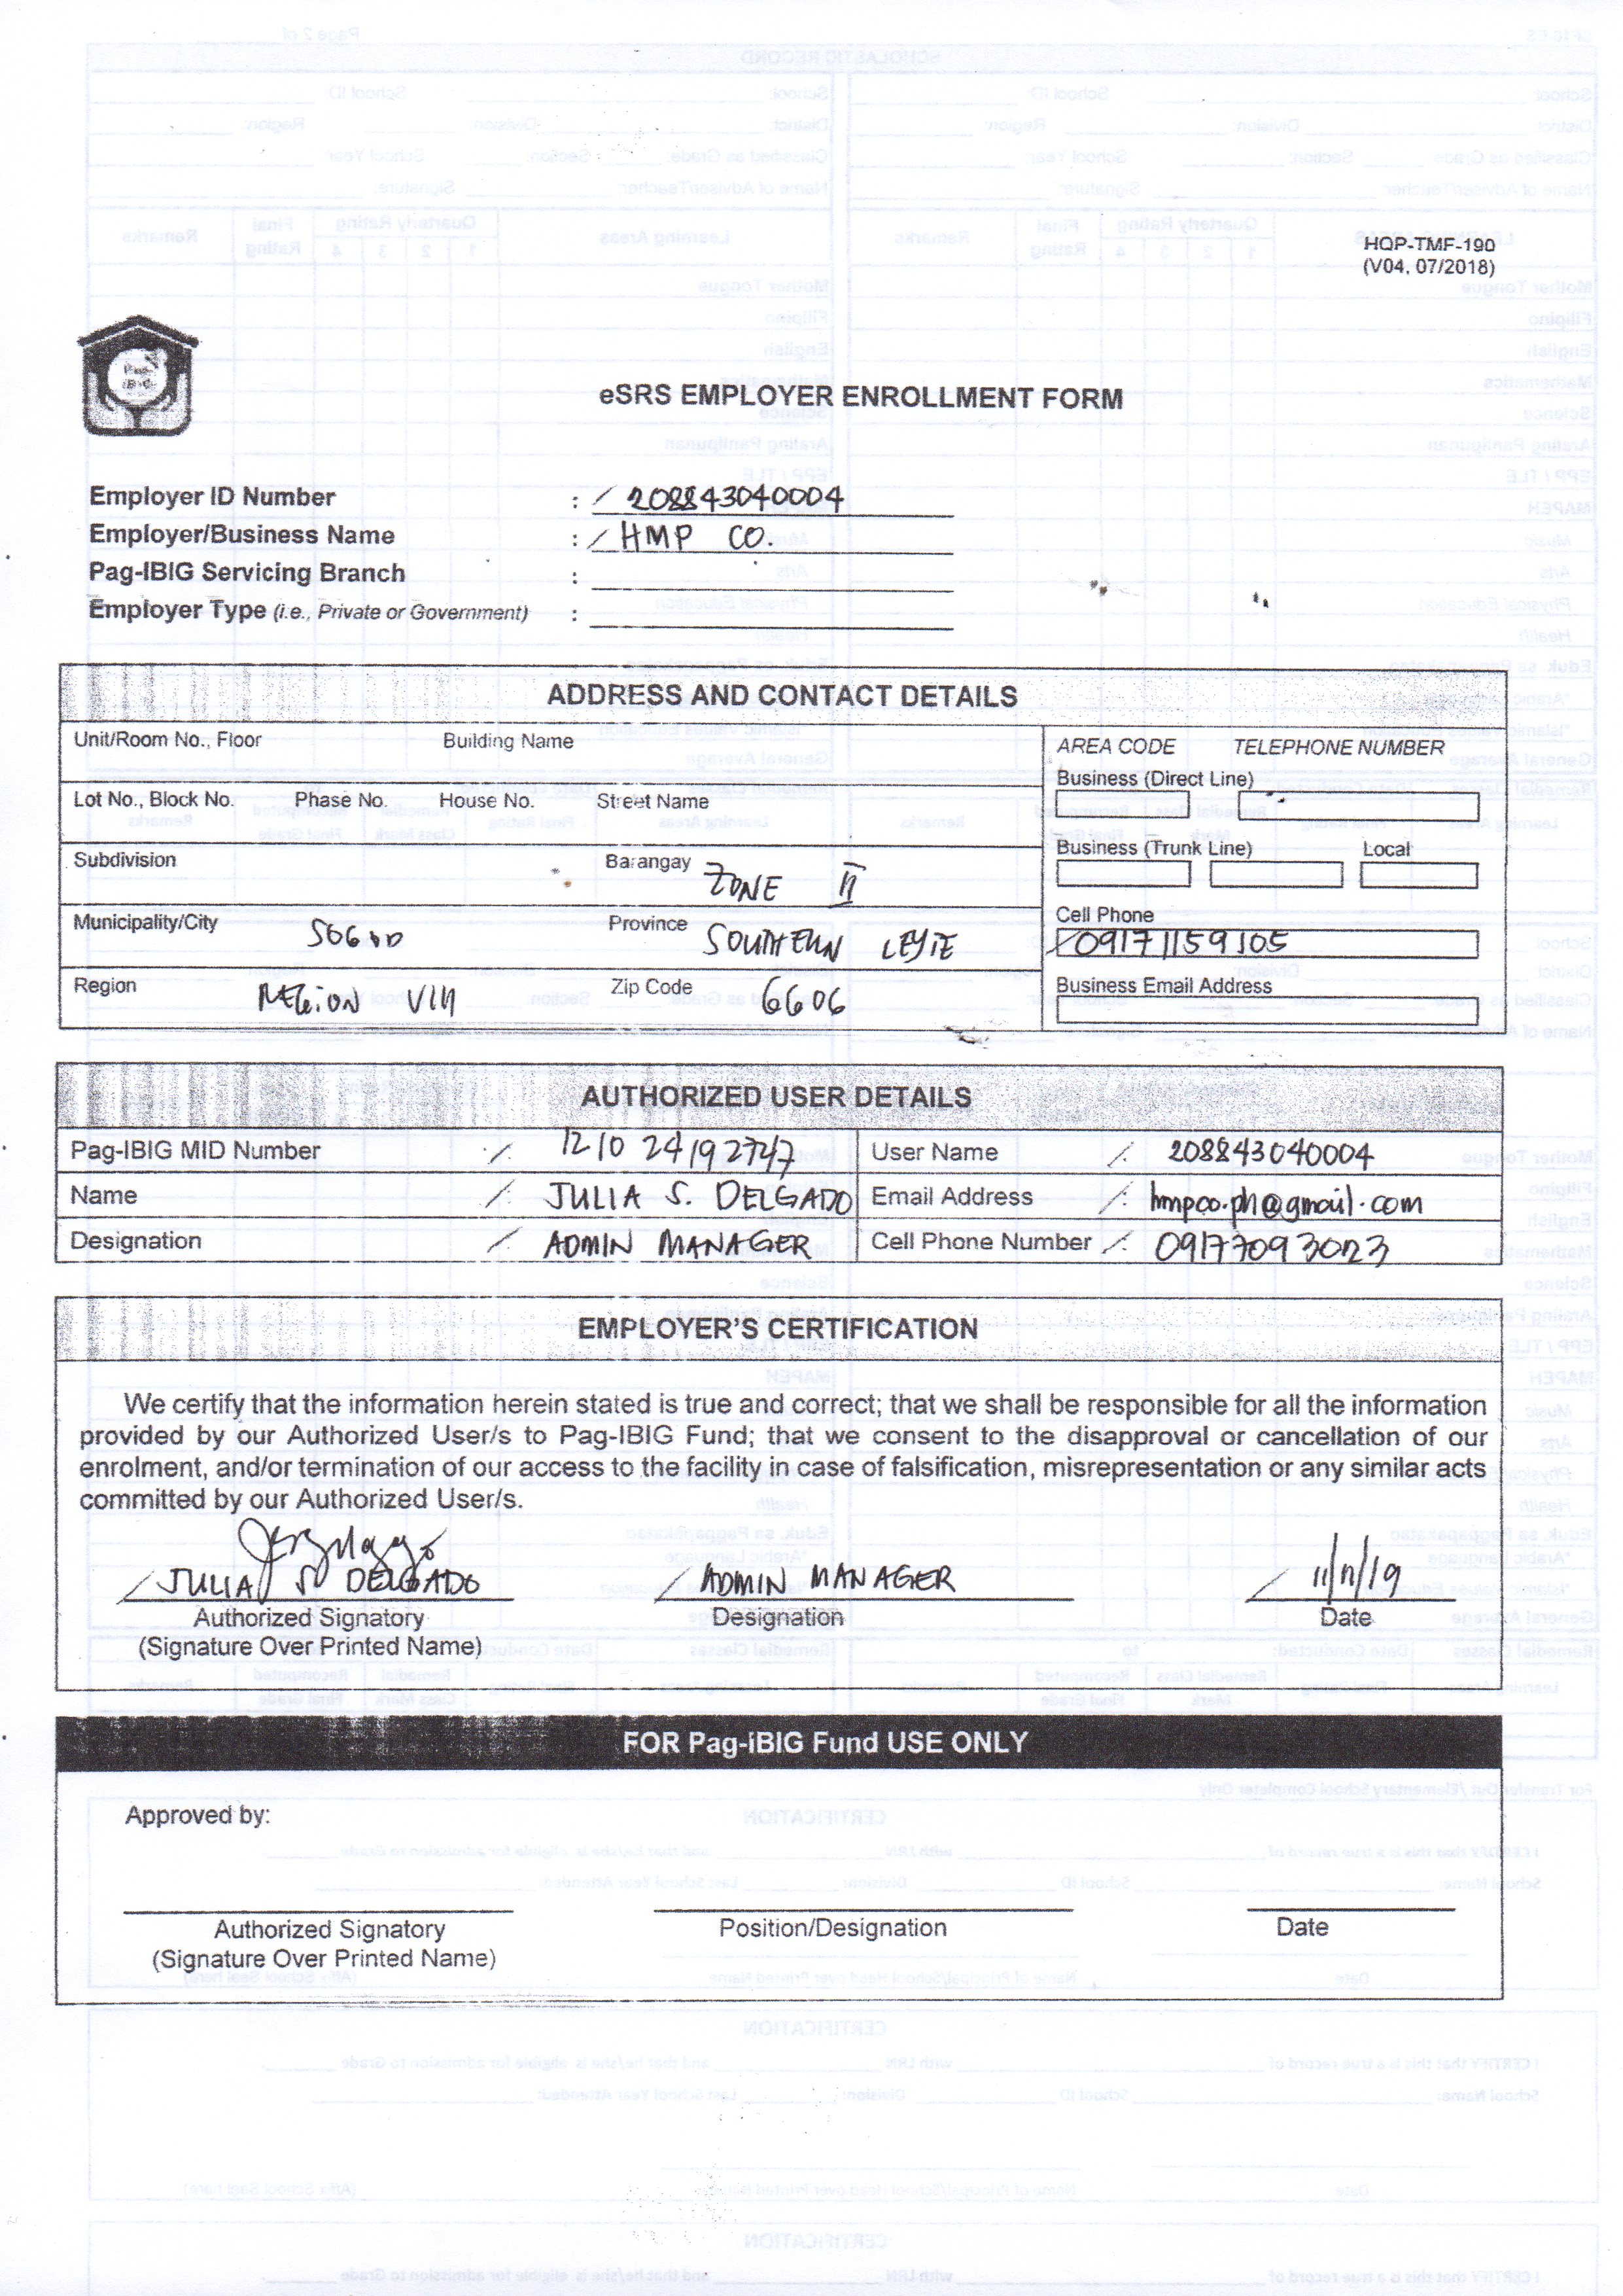 HQP-TMF-190
(V04, 07/2018)
eSRS EMPLOYER ENROLLMENT FORM
Employer ID Number : 208843040004
Employer/Business Name : HMP CO.
Pag-IBIG Servicing Branch :
Employer Type (i.e., Private or Government) :
ADDRESS AND CONTACT DETAILS
Unit/Room No., Floor Building Name
Lot No., Block No. Phase No. House No. Street Name
Subdivision Barangay ZONE II
Municipality/City SOGOD Province SOUTHERN LEYTE
Region REGION VIII Zip Code 6606
AREA CODE TELEPHONE NUMBER
Business (Direct Line)
Business (Trunk Line) Local
Cell Phone
09171159105
Business Email Address
AUTHORIZED USER DETAILS
Pag-IBIG MID Number : 1210 24192747 User Name : 208843040004
Name : JULIA S. DELGADO Email Address : hmpco.ph@gmail.com
Designation : ADMIN MANAGER Cell Phone Number : 09177093023
EMPLOYER'S CERTIFICATION
We certify that the information herein stated is true and correct; that we shall be responsible for all the information
provided by our Authorized User/s to Pag-IBIG Fund; that we consent to the disapproval or cancellation of our
enrolment, and/or termination of our access to the facility in case of falsification, misrepresentation or any similar acts
committed by our Authorized User/s.
JULIA S. DELGADO ADMIN MANAGER 11/11/19
Authorized Signatory Designation Date
(Signature Over Printed Name)
FOR Pag-IBIG Fund USE ONLY
Approved by:
Authorized Signatory Position/Designation Date
(Signature Over Printed Name)